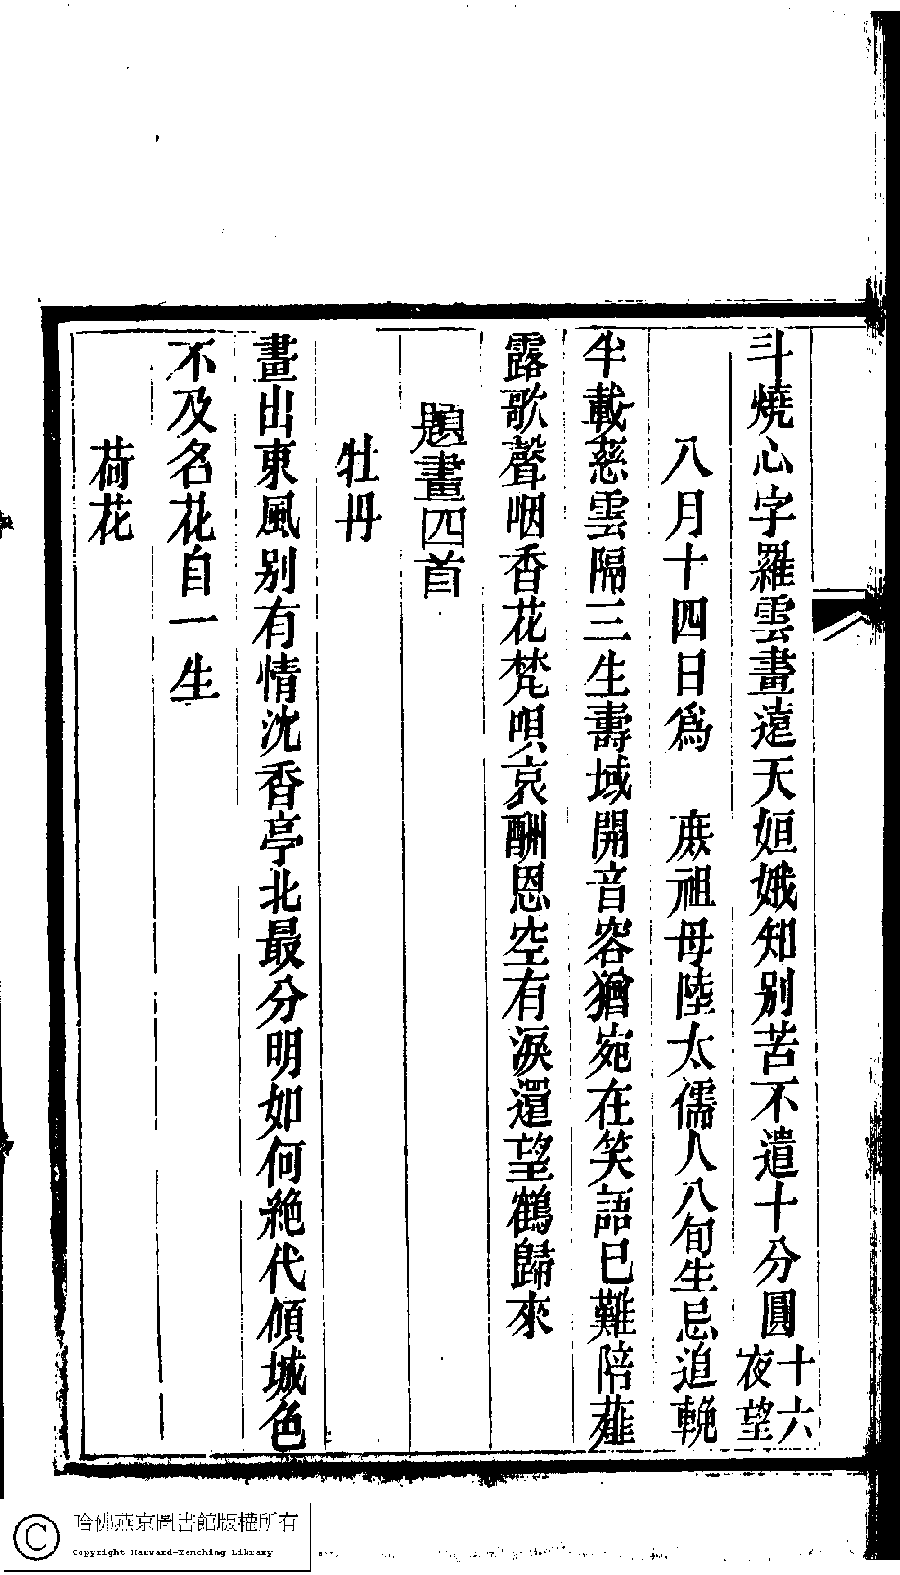 斗燒心字羅雲畫遠天姮娥知别苦不遣十分圓十六夜望
八月十四日爲 庻祖母陸太儒人八旬生忌追輓
半載慈雲隔三生壽域開音容猶宛在笑語已難陪薤
露歌聲咽香花梵唄哀酬恩空有淚還望鶴歸來
題畫四首
牡丹
畫出東風别有情沈香亭北最分明如何絶代傾城色
不及名花自一生
荷花
哈佛燕京圖書館版權所有
Copyright Harvard-Yenching Library